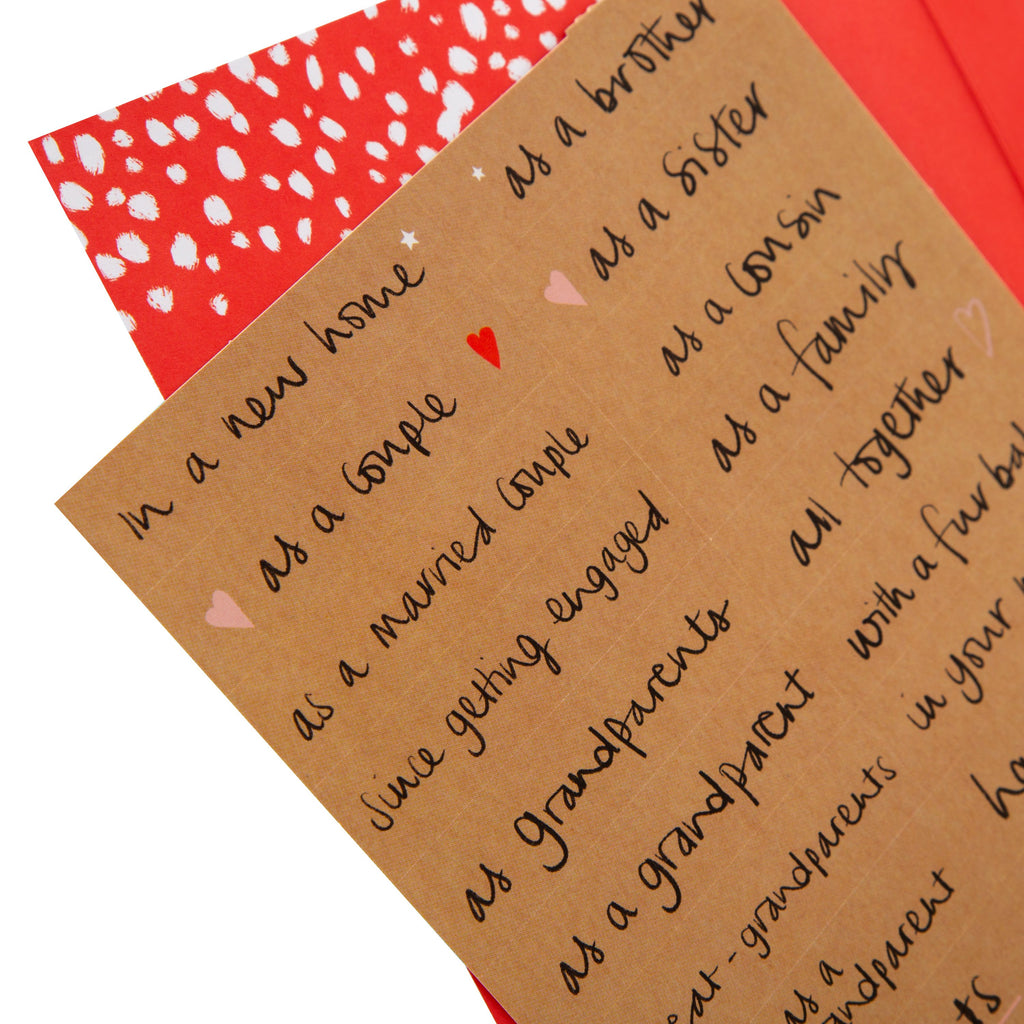 in a new home
as a couple
as a married couple
since getting engaged
as grandparents
as a grandparent
grandparents
as a
as a brother
as a sister
as a cousin
as a family
all together
with a fur
in your